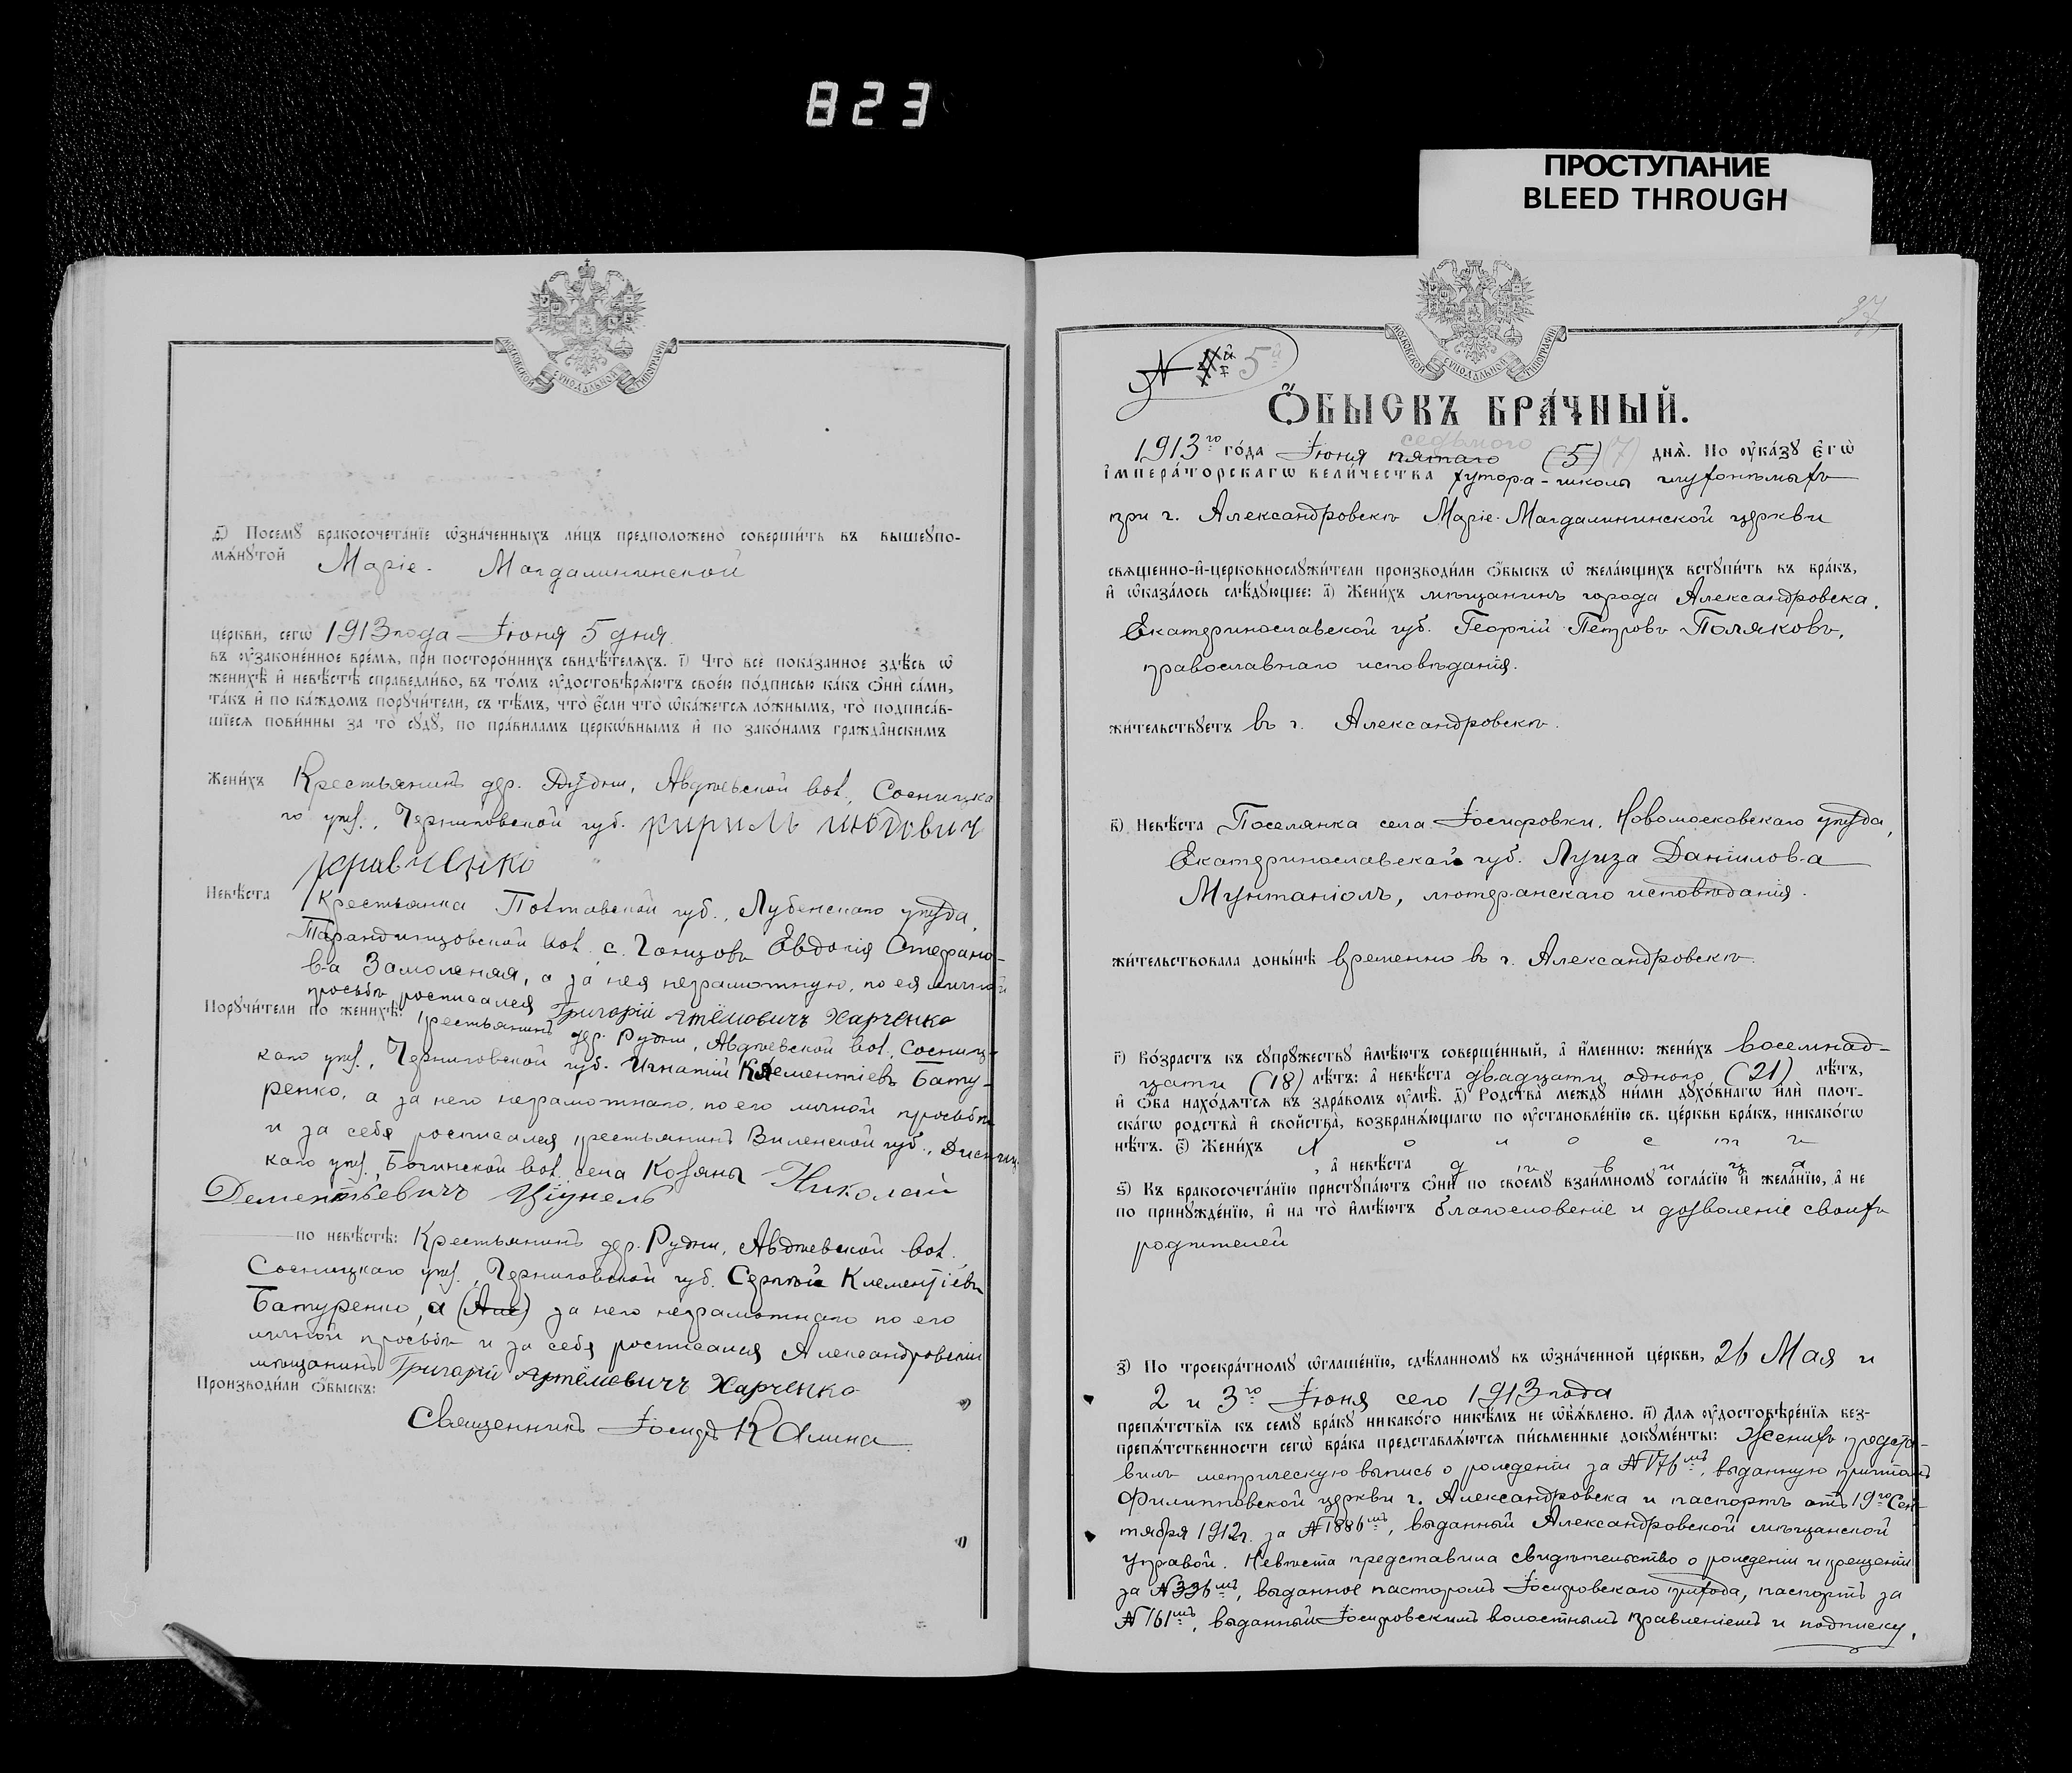 823
ПРОСТУПАНИЕ
BLEED THROUGH
МОСКОВСКОЙ СУНОДАЛЬНОЙ ТИПОГРАФІИ
д҃) Посемꙋ бракосочета́нїе ѡ҆зна́ченныхъ ли́цъ предположено̀ соверши́ть въ вышеꙋпо-
мѧ́нꙋтой Маріе-Магдалининской
це́ркви, сегѡ̀ 1913 года Іюня 5 дня
въ ᲂу҆зако́не́нное вре́мѧ, при посторо́ннихъ свидѣ́телѧхъ. і҃) Что̀ всѐ пока́занное здѣ́сь ѡ҆
женихѣ̀ и҆ невѣ́стѣ справедли́во, въ то́мъ ᲂу҆достовѣрѧ́ютъ свое́ю по́дписью ка́къ ѻ҆нѝ са́ми,
та́къ и҆ по ка́ждомъ порꙋчи́тели, съ тѣ́мъ, что̀ є҆́сли что̀ ѡ҆ка́жетсѧ ло́жнымъ, то̀ подписа́в-
шїесѧ пови́нны за то̀ сꙋдꙋ̀, по пра́виламъ церко́внымъ и҆ по зако́намъ гражда́нскимъ
Жени́хъ Крестьянинъ дер. Рудни, Авдѣевской вол., Сосницка-
го уѣз., Черниговской губ. кирилъ
кравченко
Невѣ́ста Крестьянка Полтавской губ., Лубенскаго уѣзда,
Тарандинцовской вол. с. Гонцовъ Евдокія Стефано-
в-а Замоленая, а за нея неграмотную, по ея личной
просьбѣ росписался Григорій Артёмовичъ Харченко
Порꙋчи́тели по женихѣ̀: крестьянинъ дер. Рудни, Авдѣевской вол., Сосниц-
каго уѣз., Черниговской губ. Игнатій Клементіевъ Бату-
ренко, а за него неграмотнаго, по его личной просьбѣ
и за себя росписался крестьянинъ Виленской губ., Дисниц-
каго уѣз. Богинской вол. села Козяны Николай
Дементьевичъ Ціунель
по невѣ́стѣ: Крестьянинъ дер. Рудни, Авдѣевской вол.
Сосницкаго уѣз., Черниговской губ. Сергѣй Клементіевъ
Батуренко, а за него неграмотнаго по его
личной просьбѣ и за себя росписался Александровскій
мѣщанинъ Григорій Артёмовичъ Харченко
Производи́ли ѻ҆́быскъ:
Священникъ Іосифъ Калина
37
МОСКОВСКОЙ СУНОДАЛЬНОЙ ТИПОГРАФІИ
№ 5й
Ѻ҆́БЫСКЪ БРА́ЧНЫЙ.
седьмого
1913го го́да Іюня пятаго (5) (7) днѧ̀. По ᲂу҆ка́зꙋ є҆гѡ̀
і҆мпера́торскагѡ вели́чества хутора-школы глухонѣмыхъ
при г. Александровскѣ Маріе-Магдалининской церкви
свѧще́нно-и҆-церковнослꙋжи́тели производи́ли ѻ҆́быскъ ѡ҆ жела́ющихъ встꙋпи́ть въ бра́къ,
и҆ ѡ҆каза́лось слѣ́дꙋющее: а҃) Жени́хъ мѣщанинъ города Александровска,
Екатеринославской губ. Георгій Петровъ Поляковъ,
православнаго исповѣданія.
жи́тельствꙋетъ въ г. Александровскѣ.
в҃) Невѣ́ста Поселянка села Іосифовки, Новомосковскаго уѣзда,
Екатеринославской губ. Луиза Даніилов-а
Мунтаніолъ, лютеранскаго исповѣданія.
жи́тельствовала доны́нѣ временно въ г. Александровскѣ.
г҃) Во́зрастъ къ сꙋпрꙋ́жествꙋ и҆мѣ́ютъ соверше́нный, а҆ и҆́менно: жени́хъ восемнад-
цати (18) лѣ́тъ: а҆ невѣ́ста двадцати одного (21) лѣ́тъ,
и҆ ѻ҆́ба нахо́дѧтсѧ въ здра́вомъ ᲂу҆мѣ̀. д҃) Родства̀ междꙋ̀ ни́ми дꙋхо́внагѡ и҆лѝ плот-
ска́гѡ родства̀ и҆ сво́йства̀, возбранѧ́ющагѡ по ᲂу҆становле́нїю св. це́ркви бра́къ, никако́гѡ
нѣ́тъ. є҃) Жени́хъ холостъ
, а҆ невѣ́ста дѣвица
ѕ҃) Къ бракосочета́нїю пристꙋпа́ютъ ѻ҆нѝ по своемꙋ̀ взаи́мномꙋ согла́сїю и҆ жела́нїю, а҆ не
по принꙋжде́нїю, и҆ на то̀ и҆мѣ́ютъ благословеніе и дозволеніе своихъ
родителей
з҃) По троекра́тномꙋ ѡ҆глаше́нїю, сдѣ́ланномꙋ въ ѡ҆зна́ченной це́ркви, 26 Мая и
2 и 3го Іюня сего 1913 года
препѧ́тствїѧ къ семꙋ̀ бра́кꙋ никако́го никѣ́мъ не ѡ҆б̾ѧ́влено. и҃) Длѧ ᲂу҆достовѣре́нїѧ без-
препѧ́тственности сегѡ̀ бра́ка представлѧ́ютсѧ пи́сьменные докꙋме́нты: Женихъ предста-
вилъ метрическую выпись о рожденіи за №176мъ, выданную причтомъ
Филипповской церкви г. Александровска и паспортъ отъ 19го Сен-
тября 1912г. за №1886мъ, выданный Александровской мѣщанской
управой. Невѣста представила свидѣтельство о рожденіи и крещеніи
за №336мъ, выданное пасторомъ Іосифовскаго прихода, паспортъ за
№161мъ, выданный Іосифовскимъ волостнымъ правленіемъ и подписку,